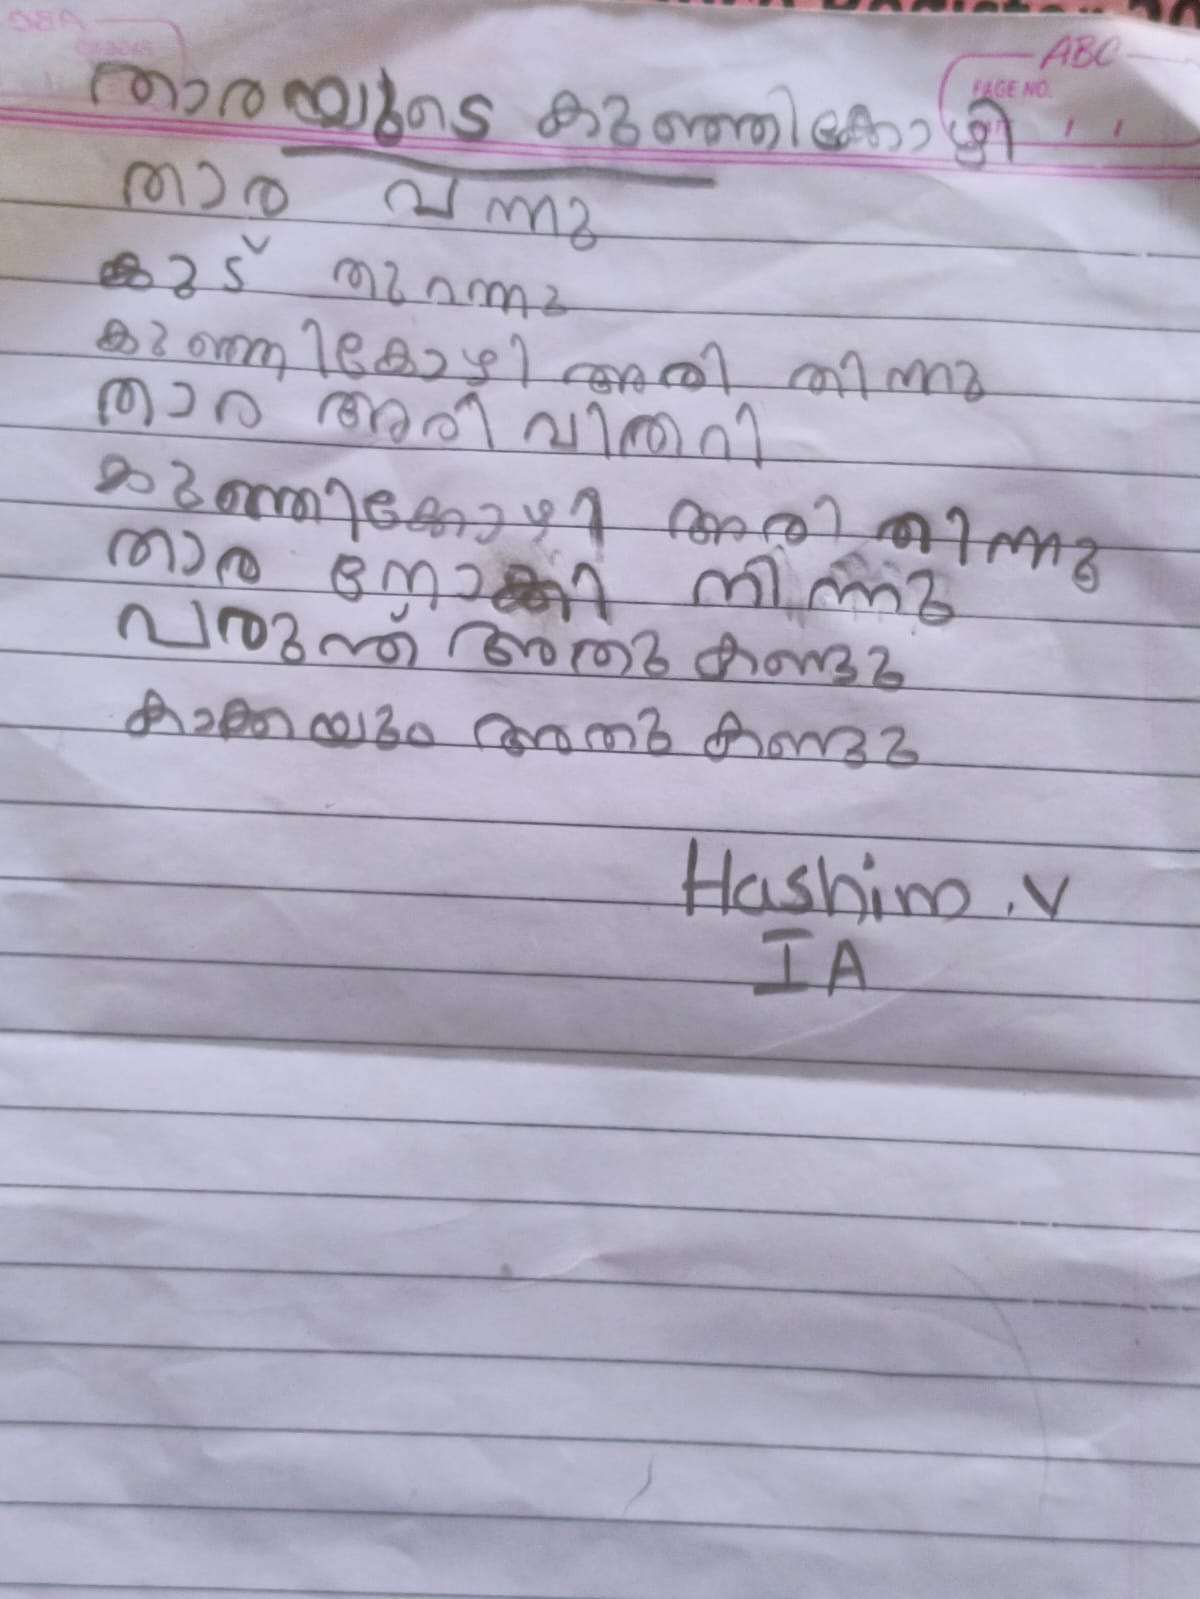 ABC
PAGE NO.
താരയുടെ കുഞ്ഞികോഴി
താര വന്നു
കുട് തുറന്നു
കുഞ്ഞികോഴി അരി തിന്നു
താര അരി വിതറി
കുഞ്ഞികോഴി അരി തിന്നു
താര നോക്കി നിന്നു
പരുന്ത് അതു കണ്ടു
കാക്കയും അതു കണ്ടു
Hashim .V
I A